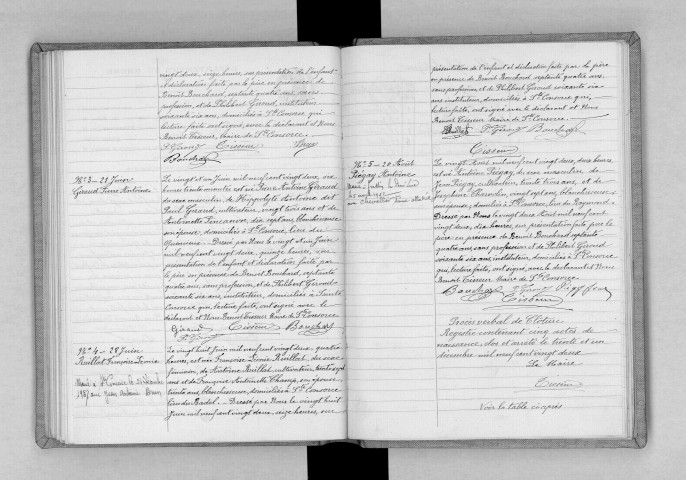 vingt deux, seize heures, sur présentation de l'enfant
et déclaration faite par le père en présence de
Benoit Bouchard septante quatre ans, sans
profession, et de Philibert Giroud, instituteur
soixante six ans, domiciliés à Ste Consorce qui
lecture faite ont signé, avec le déclarant et Nous
Benoit Tisseur, Maire de Ste Consorce.
Tisseur
Bouchard
No 3 - 21 Juin
Giraud Pierre Antoine
Le vingt et un Juin mil neuf cent vingt deux,
heures trente minutes est né Pierre Antoine Giraud
de sexe masculin, de Hippolyte Antoine dit
Paul Giraud, cultivateur, vingt trois ans et de
Antoinette blanchisseuse
son épouse, domiciliés à Ste Consorce, lieu du
Dressé par Nous le vingt et un Juin
mil neuf cent vingt deux, quinze heures, sur
présentation de l'enfant et déclaration faite par
le père en présence de Benoit Bouchard, septante
quatre ans, sans profession, et de Philibert Giroud
soixante six ans, instituteur, domiciliés à Sainte
Consorce qui, lecture faite, ont signé avec le
déclarant et Nous Benoit Tisseur Maire de Ste Consorce
Giraud Tisseur Bouchard
No 4 - 28 Juin
Ruillat Françoise Louise
Le vingt huit Juin mil neuf cent vingt deux quatre
heures, est née Françoise Louise Ruillat, du sexe
féminin, de Antoine Ruillat, cultivateur, trente sept
ans et de Françoise Antoinette son épouse
trente ans, blanchisseuse, domiciliés à Ste Consorce
lieu du Badel. - Dressé par Nous le vingt huit
Juin mil neuf cent vingt deux, seize heures, sur
présentation de l'enfant et déclaration faite par le père
en présence de Benoit Bouchard septante quatre ans,
sans profession et de Philibert Giroud soixante six
ans instituteur, domiciliés à Ste Consorce qui,
lecture faite, ont signé avec le déclarant et Nous
Benoit Tisseur Maire de Ste Consorce.
Bouchard
Tisseur
No 5 - 20 Août
Piégay Antoine
Le vingt Août mil neuf cent vingt deux, deux heures,
est né Antoine Piégay du sexe masculin de
Jean Piégay, cultivateur, trente trois ans, et de
Joséphine vingt sept ans, blanchisseuse
son épouse, domiciliés à Ste Consorce, lieu du
Dressé par Nous le vingt deux Août mil neuf cent
vingt deux, dix heures, sur présentation faite par le
père en présence de Benoit Bouchard septante
quatre ans, sans profession et de Philibert Giroud
soixante six ans, instituteur, domiciliés à Ste Consorce
qui, lecture faite, ont signé, avec le déclarant et Nous
Benoit Tisseur Maire de Ste Consorce
Bouchard
Tisseur
Procès verbal de Clôture
Registre contenant cinq actes de
naissance, clos et arrêté le trente et un
décembre mil neuf cent vingt deux
Le Maire
Tisseur
Voir la table ci après